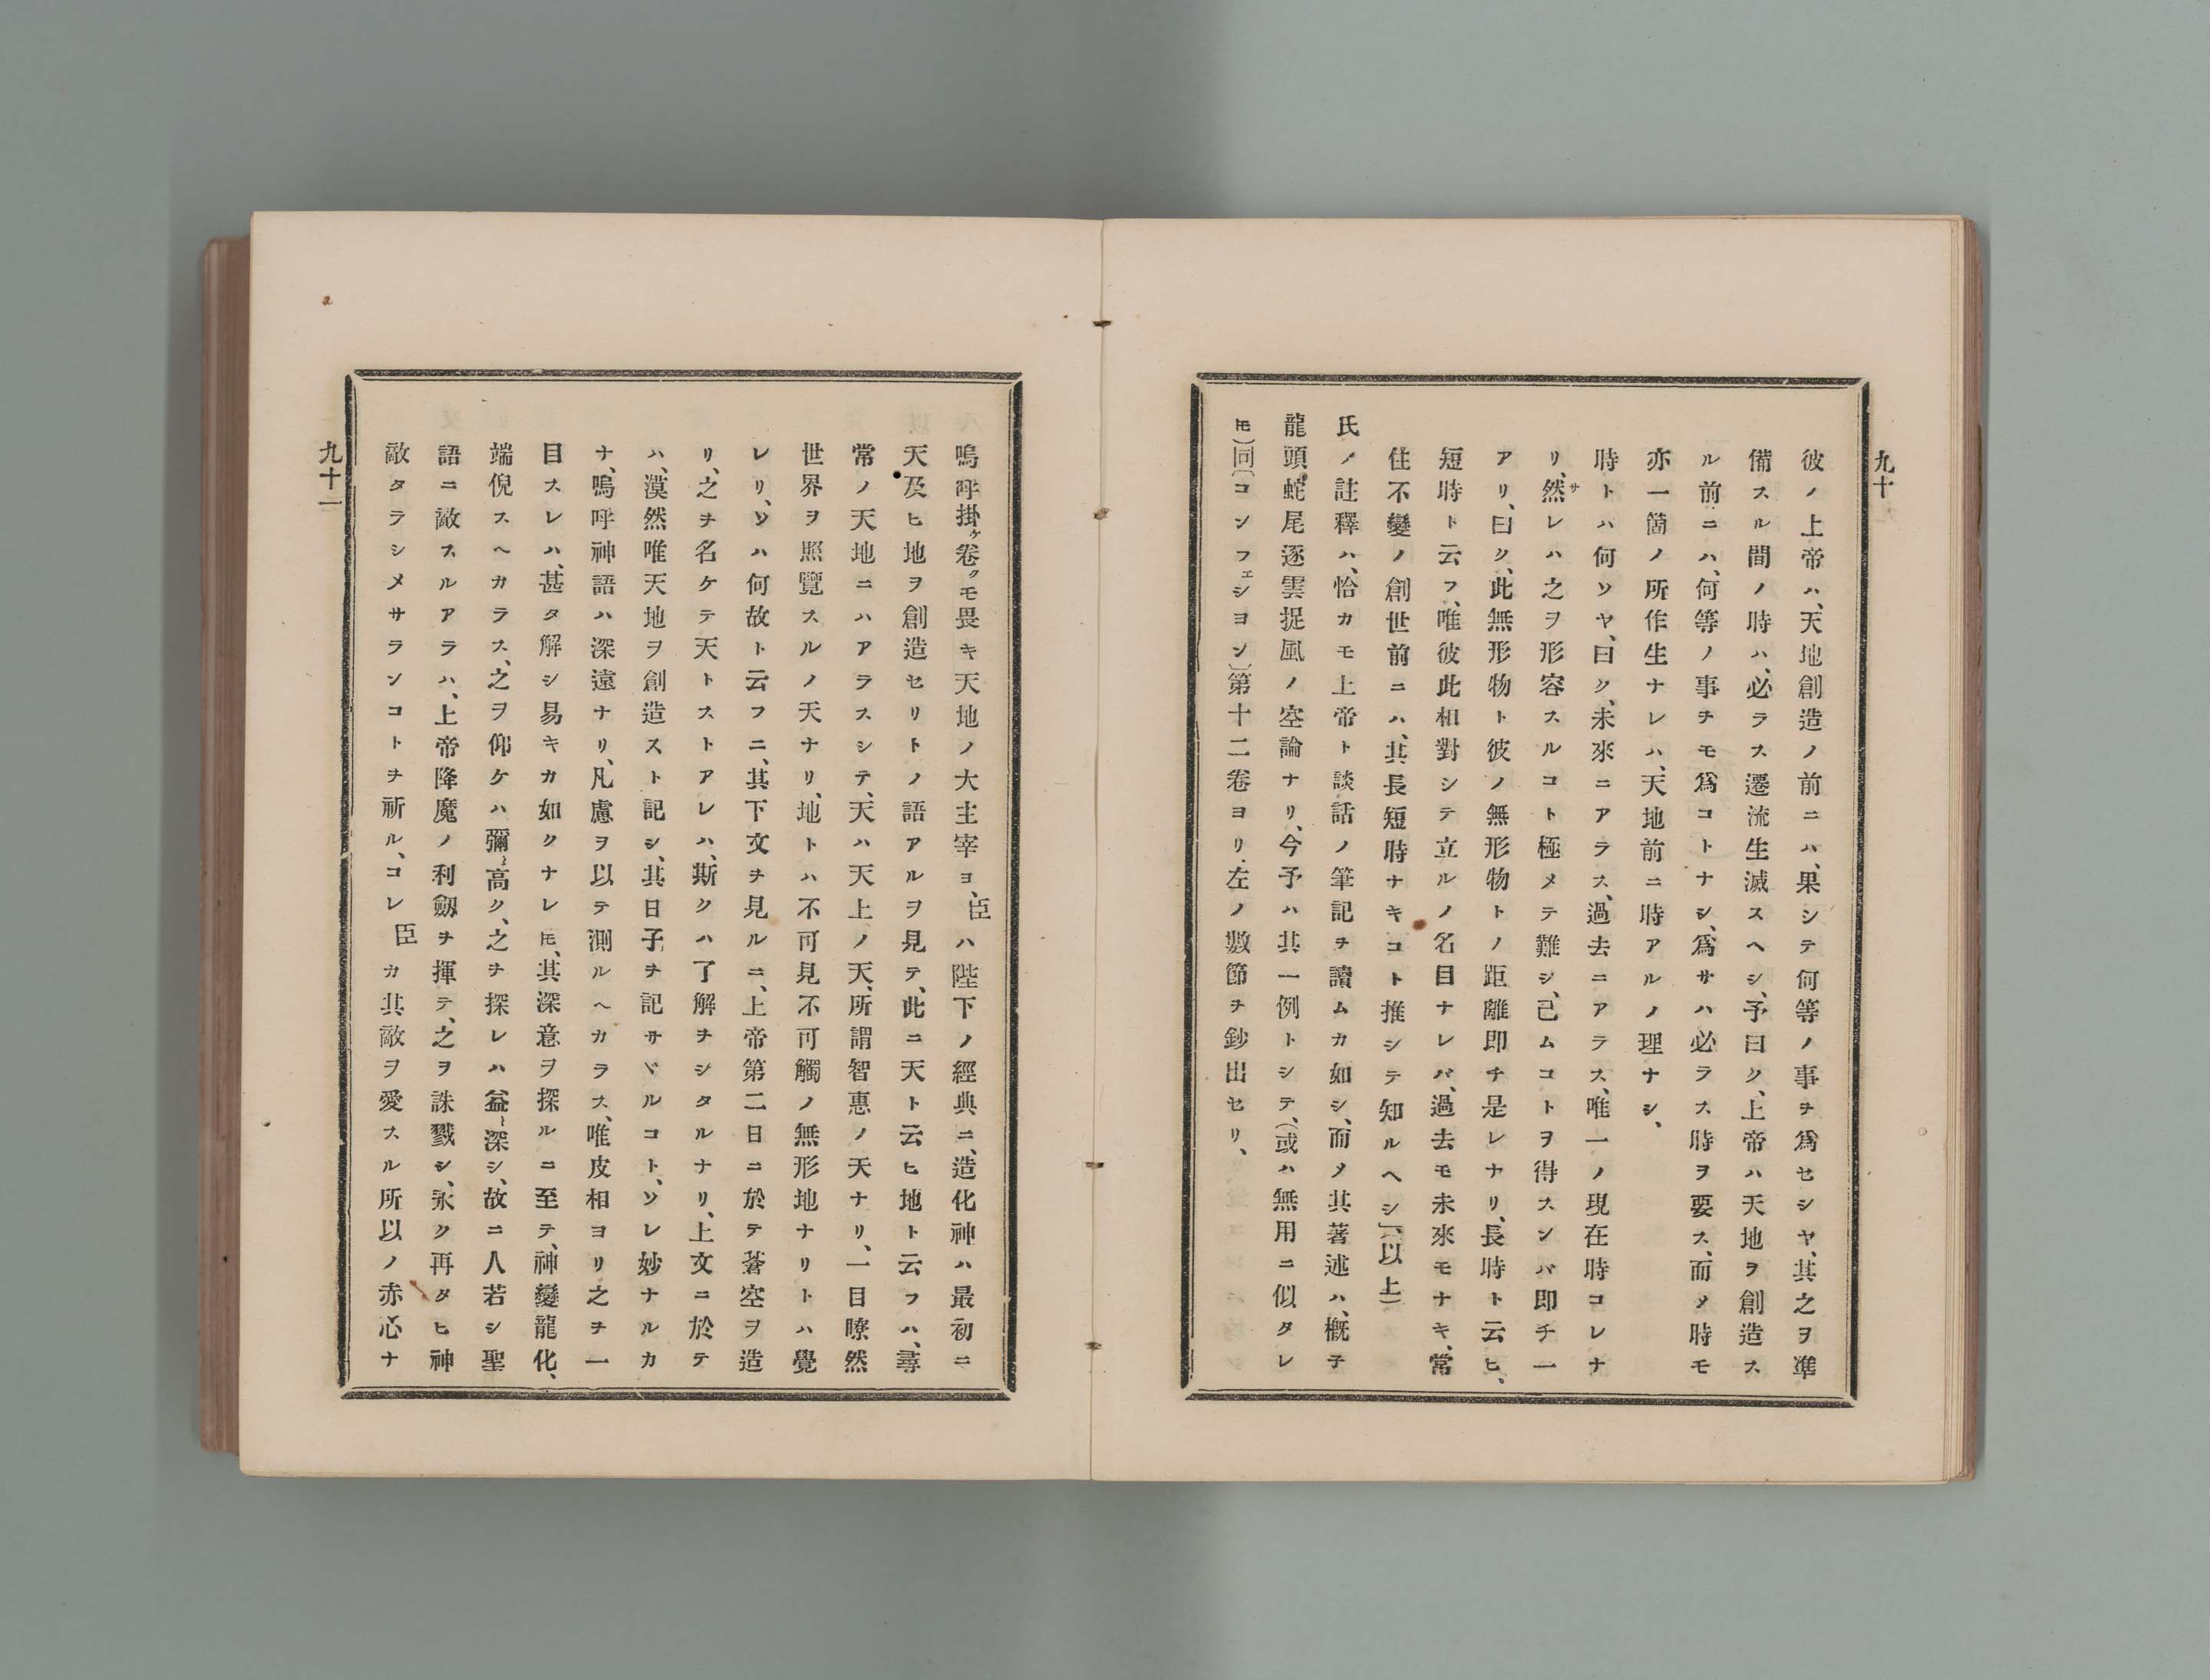 九十
彼ノ上帝ハ、天地創造ノ前ニハ、果シテ何等ノ事ヲ爲セシヤ、其之ヲ準
備スル間ノ時ハ、必ラス遷流生滅スヘシ、予曰ク、上帝ハ天地ヲ創造ス
ル前ニハ、何等ノ事チモ爲コトナシ、爲サハ必ラス時ヲ要ス、而メ時モ
亦一箇ノ所作生ナレハ、天地前ニ時アルノ理ナシ、
時トハ何ソヤ、曰ク、未來ニアラス、過去ニアラス、唯一ノ現在時コレナ
リ、然サレハ之ヲ形容スルコト極メテ難シ、己ムコトヲ得スンバ即チ一
アリ、曰ク、此無形物ト彼ノ無形物トノ距離即チ是レナリ、長時ト云ヒ、
短時ト云フ、唯彼此相對シテ立ルノ名目ナレバ、過去モ未來モナキ、常
住不變ノ創世前ニハ、其長短時ナキコト推シテ知ルヘシ、(以上)
氏ノ註釋ハ、恰カモ上帝ト談話ノ筆記チ讀ムカ如シ、而メ其著述ハ、概子
龍頭蛇尾逐雲捉風ノ空論ナリ、今予ハ其一例トシテ、(或ハ無用ニ似タレ
𪜈)同(コンフェシヨン)第十二卷ヨリ左ノ數節チ鈔出セリ、
嗚呼掛ケ卷クモ畏キ天地ノ大主宰ヨ、臣ハ陛下ノ經典ニ、造化神ハ最初ニ
天及ヒ地ヲ創造セリトノ語アルヲ見テ、此ニ天ト云ヒ地ト云フハ、尋
常ノ天地ニハアラスシテ、天ハ天上ノ天、所謂智惠ノ天ナリ、一目瞭然
世界ヲ照覽スルノ天ナリ、地トハ不可見不可觸ノ無形地ナリトハ覺
レリ、ソハ何故ト云フニ、其下文チ見ルニ、上帝第二日ニ於テ蒼空ヲ造
リ、之チ名ケテ天トストアレハ、斯クハ了解チシタルナリ、上文ニ於テ
ハ、漠然唯天地ヲ創造スト記シ、其日子チ記サヾルコト、ソレ妙ナルカ
ナ、嗚呼神語ハ深遠ナリ、凡慮ヲ以テ測ルヘカラス、唯皮相ヨリ之チ一
目スレハ、甚タ解シ易キカ如クナレ𪜈、其深意ヲ探ルニ至テ、神變龍化、
端倪スヘカラス、之ヲ仰ケハ彌〻高ク、之チ探レハ益〻深シ、故ニ人若シ聖
語ニ敵スルアラハ、上帝降魔ノ利劒チ揮テ、之ヲ誅戮シ、永ク再タヒ神
敵タラシメサランコトチ祈ル、コレ臣カ其敵ヲ愛スル所以ノ赤心ナ
九十一